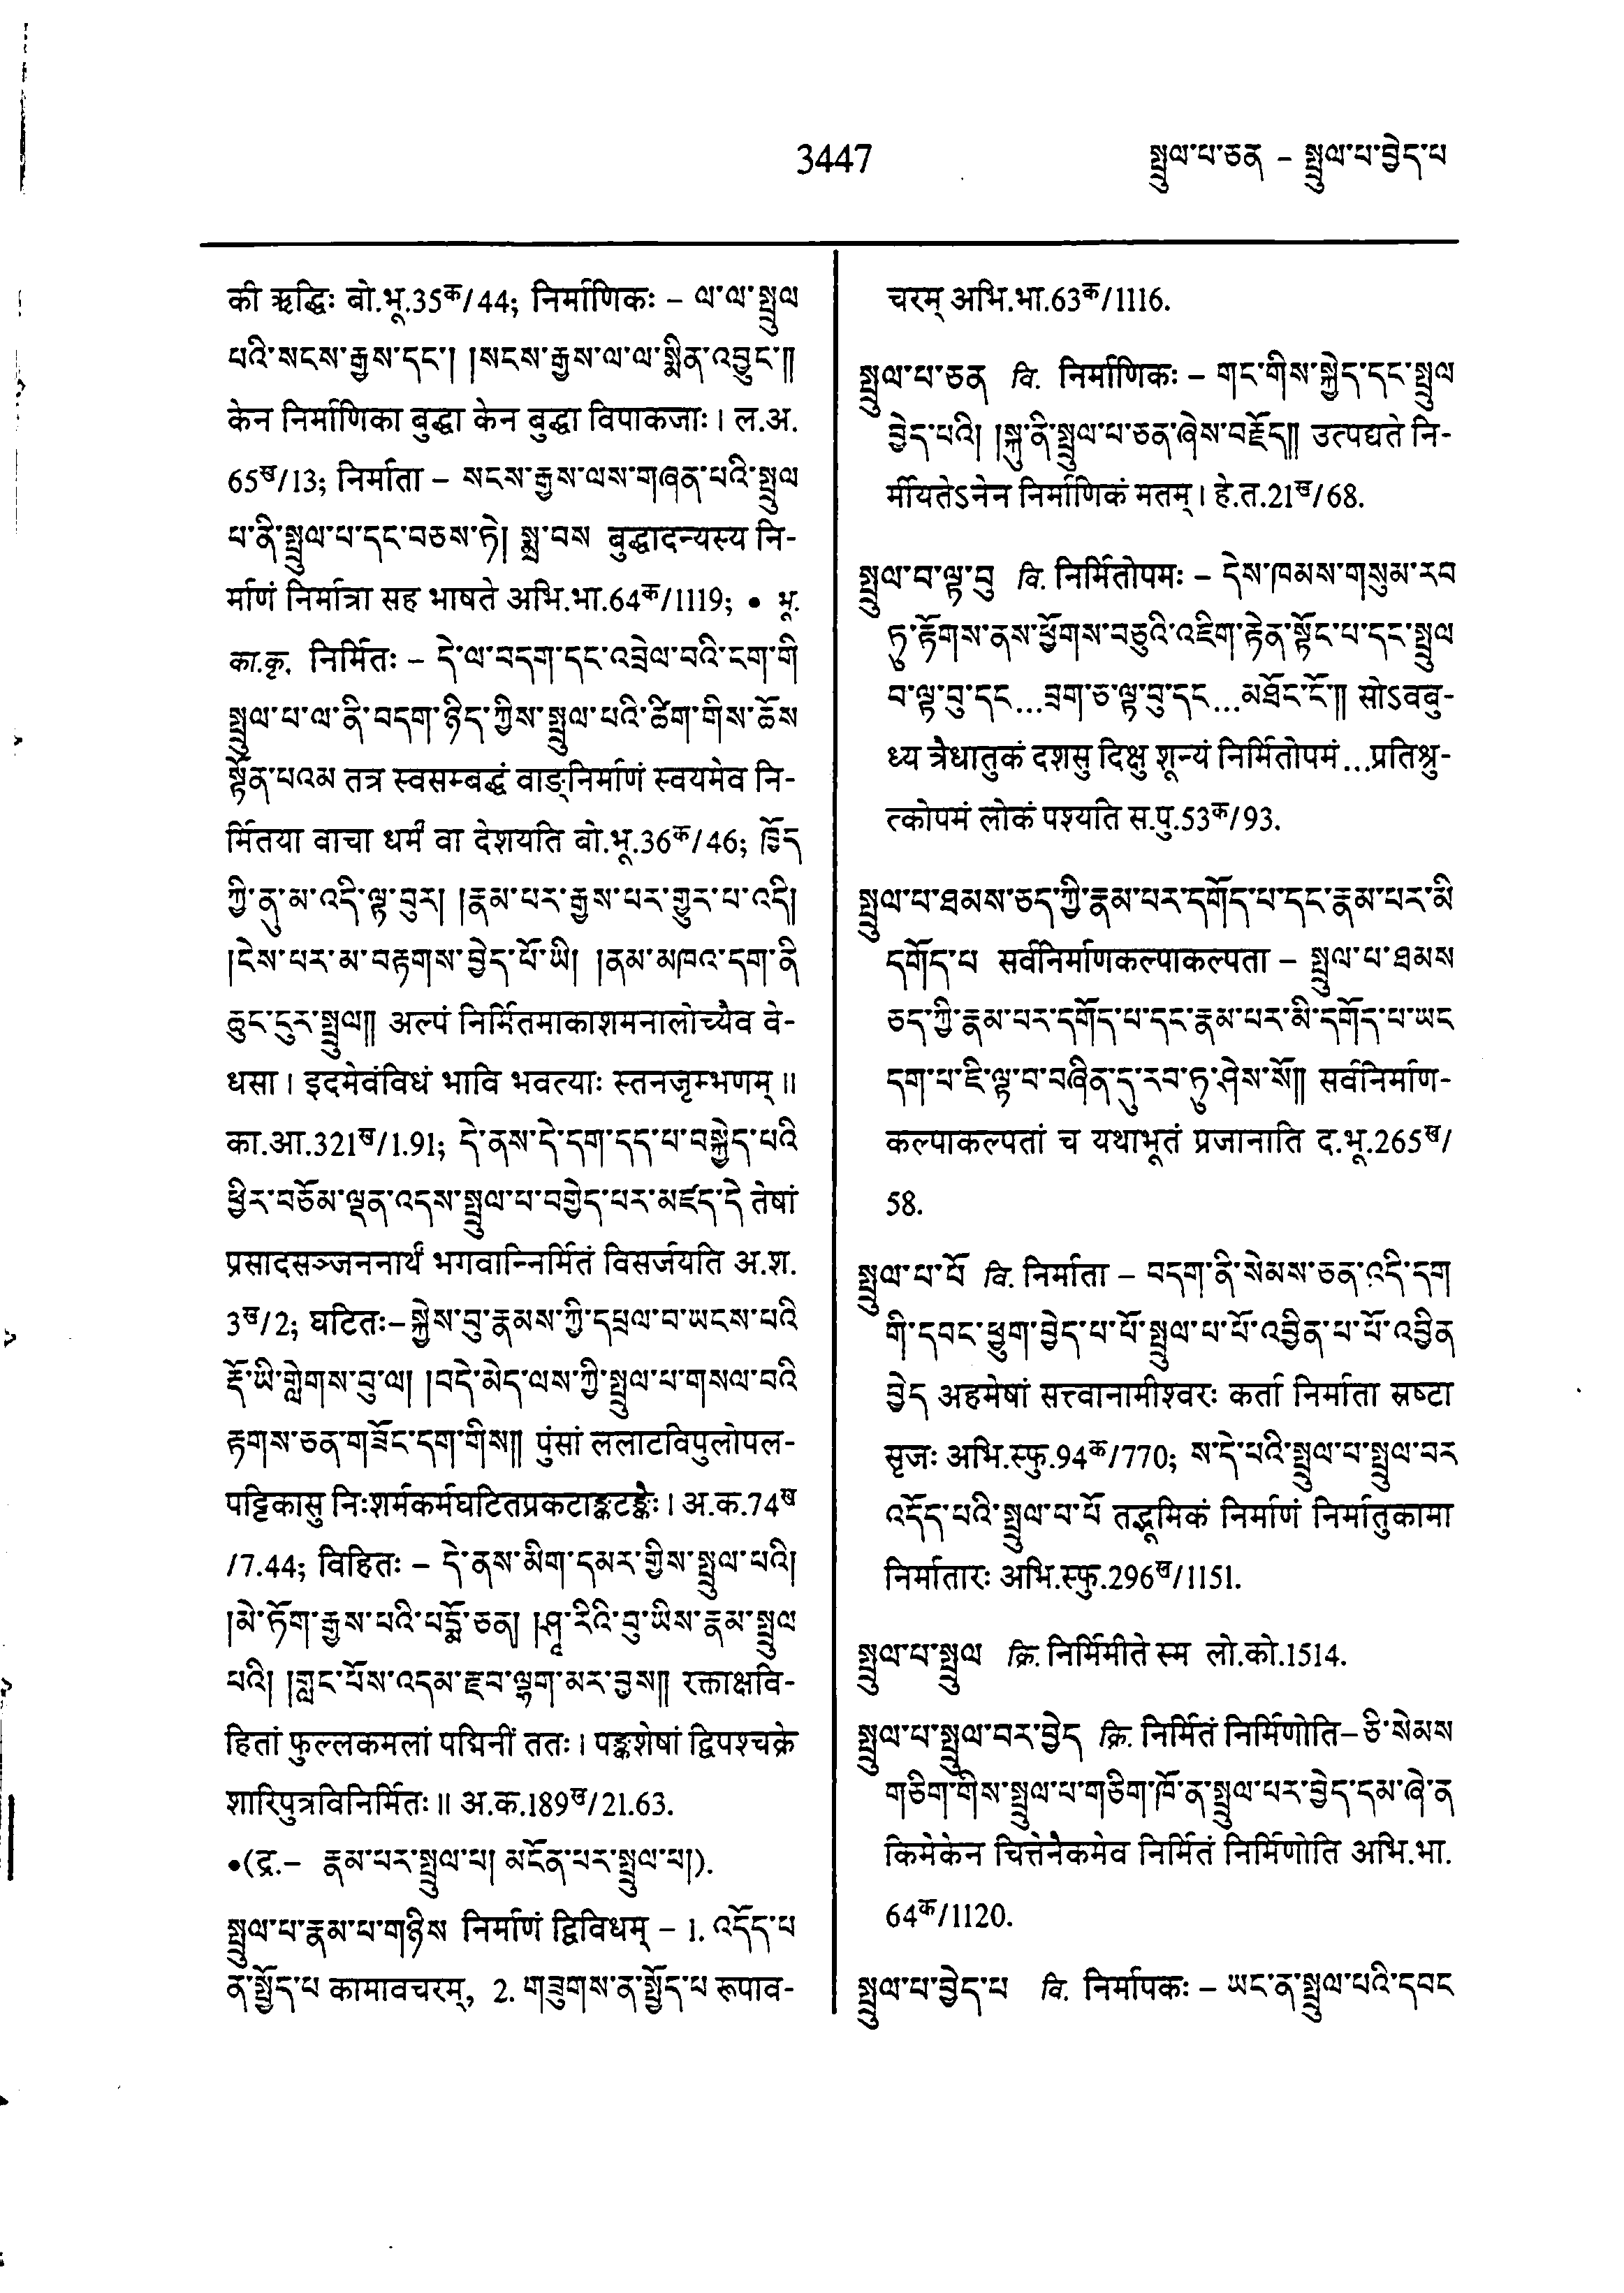 3447
སྤྲུལ་པ་ཅན – སྤྲུལ་པ་བྱེད་པ
की ऋद्धिः बो.भू.35क/44; निर्माणिकः – ལ་ལ་སྤྲུལ
པའི་སངས་རྒྱས་དང་། །སངས་རྒྱས་ལ་ལ་སྨིན་འབྱུང་༎
केन निर्माणिका बुद्धा केन बुद्धा विपाकजाः। ल.अ.
65ख/13; निर्माता – སངས་རྒྱས་ལས་གཞན་པའི་སྤྲུལ
པ་ནི་སྤྲུལ་པ་དང་བཅས་ཏེ། སྨྲ་བས बुद्धादन्यस्य नि-
र्माणं निर्मात्रा सह भाषते अभि.भा.64क/1119; • भू.
का.कृ. निर्मितः – དེ་ལ་བདག་དང་འབྲེལ་བའི་ངག་གི
སྤྲུལ་པ་ལ་ནི་བདག་ཉིད་ཀྱིས་སྤྲུལ་པའི་ཚིག་གིས་ཆོས
སྟོན་པའམ तत्र स्वसम्बद्धं वाङ्निर्माणं स्वयमेव नि-
र्मितया वाचा धर्मं वा देशयति बो.भू.36क/46; ཁྱོད
ཀྱི་ནུ་མ་འདི་ལྟ་བུར། །རྣམ་པར་རྒྱས་པར་གྱུར་པ་འདི།
།ངེས་པར་མ་བརྟགས་བྱེད་པོ་ཡི། །ནམ་མཁའ་དག་ནི
ཆུང་ངུར་སྤྲུལ༎ अल्पं निर्मितमाकाशमनालोच्यैव वे-
धसा। इदमेवंविधं भावि भवत्याः स्तनजृम्भणम्॥
का.आ.321ख/1.91; དེ་ནས་དེ་དག་དད་པ་བསྐྱེད་པའི
ཕྱིར་བཅོམ་ལྡན་འདས་སྤྲུལ་པ་བགྱེད་པར་མཛད་དེ तेषां
प्रसादसञ्जननार्थं भगवान्निर्मितं विसर्जयति अ.श.
3ख/2; घटितः– སྐྱེས་བུ་རྣམས་ཀྱི་དཔྲལ་བ་ཡངས་པའི
རྡོ་ཡི་གླེགས་བུ་ལ། །བདེ་མེད་ལས་ཀྱི་སྤྲུལ་པ་གསལ་བའི
རྟགས་ཅན་གཟོང་དག་གིས༎ पुंसां ललाटविपुलोपल-
पट्टिकासु निःशर्मकर्मघटितप्रकटाङ्कटङ्कैः। अ.क.74ख
/7.44; विहितः – དེ་ནས་མིག་དམར་གྱིས་སྤྲུལ་པའི།
།མེ་ཏོག་རྒྱས་པའི་པདྨོ་ཅན། །ཤཱ་རིའི་བུ་ཡིས་རྣམ་སྤྲུལ
པའི། །གླང་པོས་འདམ་རྫབ་ལྷག་མར་བྱས༎ रक्ताक्षवि-
हितां फुल्लकमलां पद्मिनीं ततः। पङ्कशेषां द्विपश्चक्रे
शारिपुत्रविनिर्मितः॥ अ.क.189ख/21.63.
•(द्र.– རྣམ་པར་སྤྲུལ་པ། མངོན་པར་སྤྲུལ་པ།).
སྤྲུལ་པ་རྣམ་པ་གཉིས निर्माणं द्विविधम् – 1. འདོད་པ
ན་སྤྱོད་པ कामावचरम्, 2. གཟུགས་ན་སྤྱོད་པ रूपाव-
चरम् अभि.भा.63क/1116.
སྤྲུལ་པ་ཅན वि. निर्माणिकः – གང་གིས་སྐྱེད་དང་སྤྲུལ
བྱེད་པའི། །སྐུ་ནི་སྤྲུལ་པ་ཅན་ཞེས་བརྗོད༎ उत्पद्यते नि-
र्मीयतेऽनेन निर्माणिकं मतम्। हे.त.21ख/68.
སྤྲུལ་བ་ལྟ་བུ वि. निर्मितोपमः – དེས་ཁམས་གསུམ་རབ
ཏུ་རྟོགས་ནས་ཕྱོགས་བཅུའི་འཇིག་རྟེན་སྟོང་པ་དང་སྤྲུལ
བ་ལྟ་བུ་དང...བྲག་ཅ་ལྟ་བུ་དང...མཐོང་ངོ་༎ सोऽवबु-
ध्य त्रैधातुकं दशसु दिक्षु शून्यं निर्मितोपमं...प्रतिश्रु-
त्कोपमं लोकं पश्यति स.पु.53क/93.
སྤྲུལ་པ་ཐམས་ཅད་ཀྱི་རྣམ་པར་དགོད་པ་དང་རྣམ་པར་མི
དགོད་པ सर्वनिर्माणकल्पाकल्पता – སྤྲུལ་པ་ཐམས
ཅད་ཀྱི་རྣམ་པར་དགོད་པ་དང་རྣམ་པར་མི་དགོད་པ་ཡང
དག་པ་ཇི་ལྟ་བ་བཞིན་དུ་རབ་ཏུ་ཤེས་སོ༎ सर्वनिर्माण-
कल्पाकल्पतां च यथाभूतं प्रजानाति द.भू.265ख/
58.
སྤྲུལ་པ་པོ वि. निर्माता – བདག་ནི་སེམས་ཅན་འདི་དག
གི་དབང་ཕྱུག་བྱེད་པ་པོ་སྤྲུལ་པ་པོ་འབྱིན་པ་པོ་འབྱིན
བྱེད अहमेषां सत्त्वानामीश्वरः कर्ता निर्माता स्रष्टा
सृजः अभि.स्फु.94क/770; ས་དེ་པའི་སྤྲུལ་པ་སྤྲུལ་བར
འདོད་པའི་སྤྲུལ་པ་པོ तद्भूमिकं निर्माणं निर्मातुकामा
निर्मातारः अभि.स्फु.296ख/1151.
སྤྲུལ་པ་སྤྲུལ क्रि. निर्मिमीते स्म लो.को.1514.
སྤྲུལ་པ་སྤྲུལ་བར་བྱེད क्रि. निर्मितं निर्मिणोति– ཅི་སེམས
གཅིག་གིས་སྤྲུལ་པ་གཅིག་ཁོ་ན་སྤྲུལ་པར་བྱེད་དམ་ཞེ་ན
किमेकेन चित्तेनैकमेव निर्मितं निर्मिणोति अभि.भा.
64क/1120.
སྤྲུལ་པ་བྱེད་པ वि. निर्मापकः – ཡང་ན་སྤྲུལ་པའི་དབང